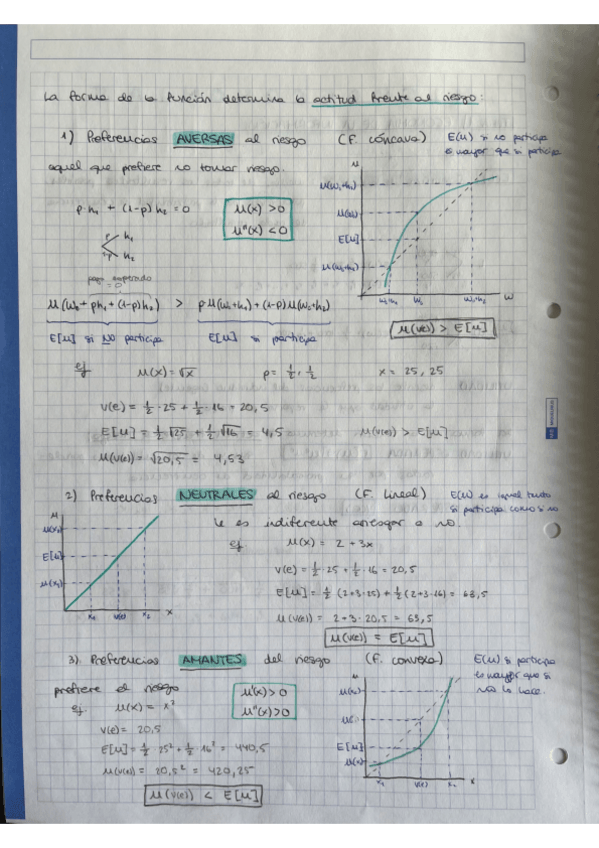 La forma de la función determina la actitud frente al riesgo:
1) Preferencias AVERSAS al riesgo (F. cóncava) E(u) si no participa
es mayor que si participa
aquel que prefiere no tomar riesgo.
p·h₁ + (1-p)h₂ = 0
u'(x) > 0
u''(x) < 0
p h₁
1-p h₂
u
u(w₀+h₂)
u(w₀)
E[u]
u(w₀+h₁)
w₀+h₁ w₀ w₀+h₂ w
pago esperado
= 0
u(w₀ + ph₁ + (1-p)h₂) > p u(w₀+h₁) + (1-p) u(w₀+h₂)
E[u] si NO participa E[u] si participa
u(v(e)) > E[u]
ej u(x) = √x p = 1/2, 1/2 x = 25, 25
v(e) = 1/2 · 25 + 1/2 · 16 = 20,5
E[u] = 1/2 √25 + 1/2 · √16 = 4,5 u(v(e)) > E[u]
u(v(e)) = √20,5 = 4,53
2) Preferencias NEUTRALES al riesgo (F. lineal) E(u) es igual tanto
si participa como si no
le es indiferente arriesgar o no.
u
u(x₂)
E[u]
u(x₁)
x₁ v(e) x₂ x
ej u(x) = 2 + 3x
v(e) = 1/2 · 25 + 1/2 · 16 = 20,5
E[u] = 1/2 (2+3·25) + 1/2 (2+3·16) = 63,5
u(v(e)) = 2+3·20,5 = 63,5
u(v(e)) = E[u]
3) Preferencias AMANTES del riesgo (F. convexa) E(u) si participa
es mayor que si
no lo hace.
prefiere el riesgo
u'(x) > 0
u''(x) > 0
ej. u(x) = x²
v(e) = 20,5
E[u] = 1/2 25² + 1/2 · 16² = 440,5
u(v(e)) = 20,5² = 420,25
u(v(e)) < E[u]
u
E[u]
x₁ v(e) x₂ x